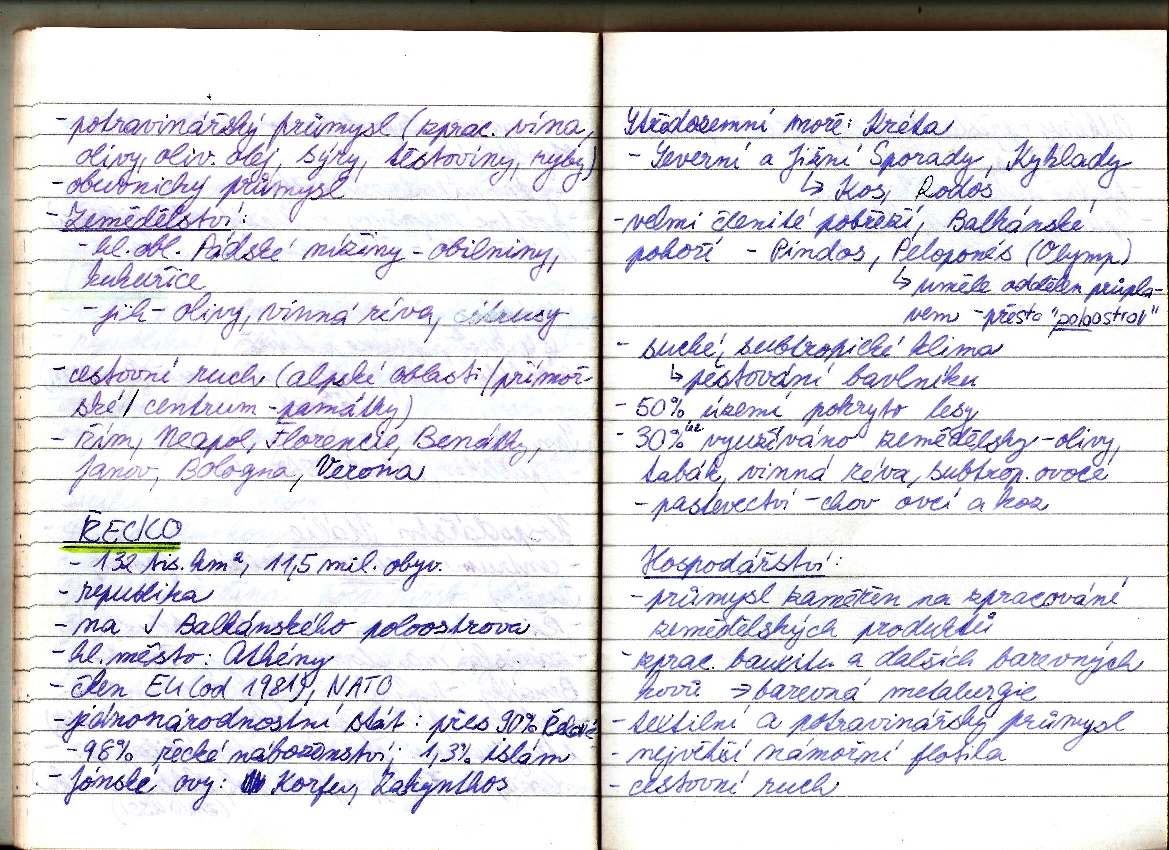 - potravinářský průmysl (zprac. vína,
olivy, oliv. olej, sýry, těstoviny, ryby)
- obuvnický průmysl
- Zemědělství:
- hl. obl. Pádské nížiny - obilniny,
kukuřice
- jih - olivy, vinná réva, citrusy
- cestovní ruch (alpské oblasti/přímoř-
ské/ centrum - památky)
- Řím, Neapol, Florencie, Benátky,
Janov, Bologna, Verona
ŘECKO
- 132 tis. km², 11,5 mil. obyv.
- republika
- na J Balkánského poloostrova
- hl. město: Athény
- člen EU (od 1981), NATO
- jednonárodnostní stát: přes 90% Řekové
- 98% řecké náboženství; 1,3% islám
- Jónské ovy: Korfu, Zakynthos
Středozemní moře: Kréta
- Severní a Jižní Sporady, Kyklady
↳ Kos, Rodos
- velmi členité pobřeží, Balkánské
pohoří - Pindos, Peloponés (Olymp)
↳ uměle oddělen průpla-
vem - přesto "poloostrov"
- suché, subtropické klima
↳ pěstování bavlníku
- 50% území pokryto lesy
- 30% úz. využíváno zemědělsky - olivy,
tabák, vinná réva, subtrop. ovoce
- pastevectví - chov ovcí a koz
Hospodářství:
- průmysl zaměřen na zpracování
zemědělských produktů
- zprac. bauxitu a dalších barevných
kovů → barevná metalurgie
- textilní a potravinářský průmysl
- největší námořní flotila
- cestovní ruch